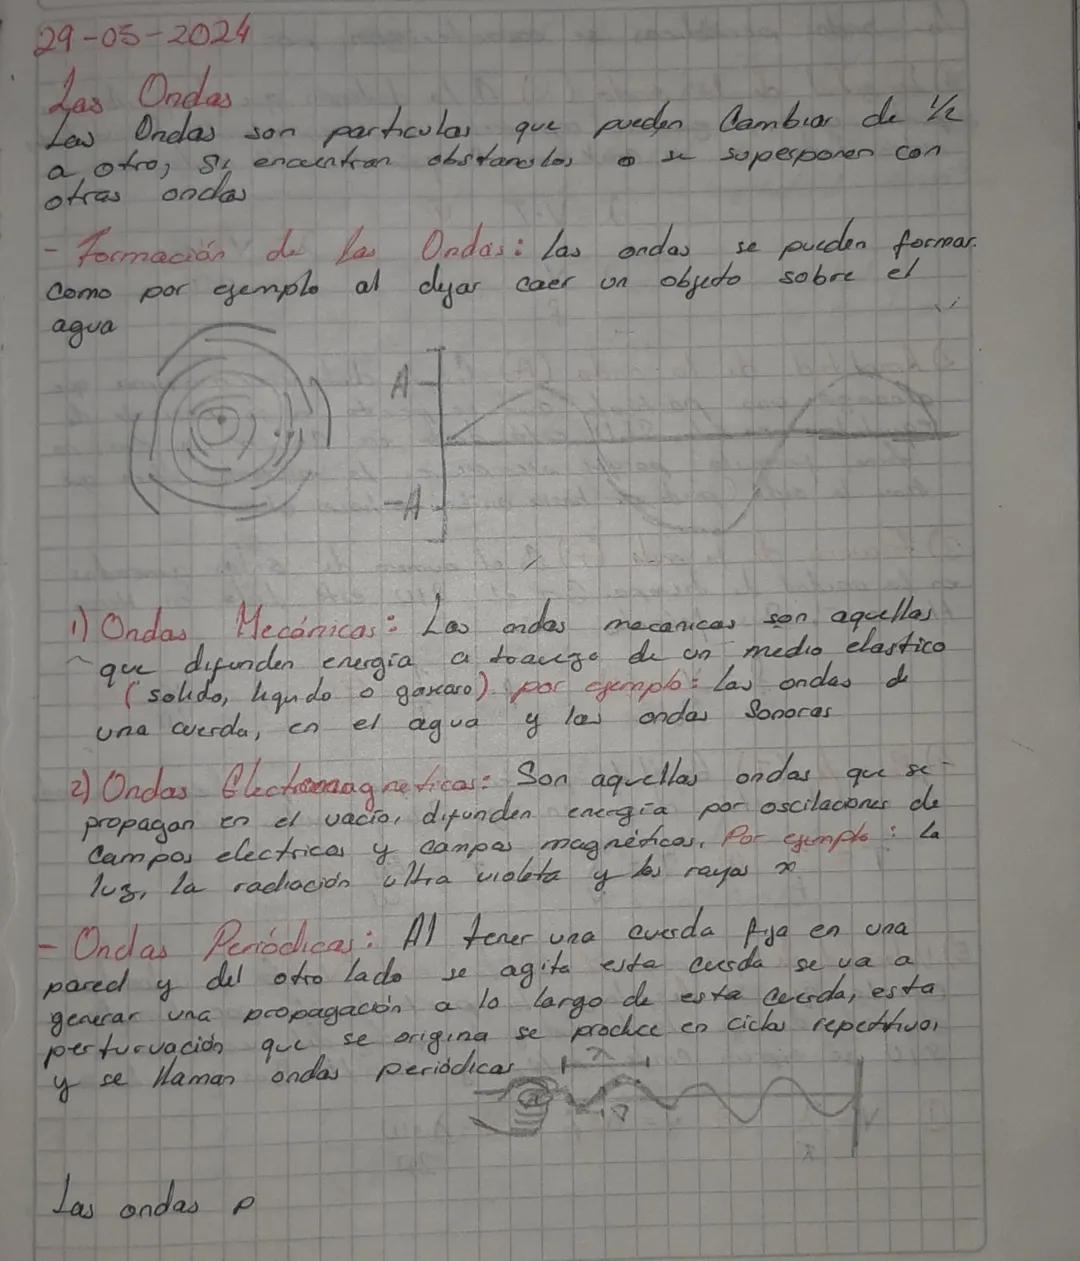 29-05-2024
Las Ondas
Las Ondas son particulas que pueden Cambiar de 1/2
a otro, Si encuentran obstanclos o se superponen con
otras ondas
- Formación de las Ondas: las ondas se pueden formar.
Como por ejemplo al dejar caer un objeto sobre el
agua
A
-A
1) Ondas Mecánicas: Las ondas mecanicas son aquellas
que difunden energía a de un medio elastico
(solido, liquido o gaseaso). por ejemplo: las ondas de
una cuerda, en el agua y las ondas Sonoras
2) Ondas Electromagneticas: Son aquellas ondas que se
propagan en el vacío, difunden energía por oscilaciones de
Campos electricos y campos magnéticos. Por ejemplo: La
luz, la radiación ultra violeta y los rayos x
- Ondas Periódicas: Al tener una cuerda fija en una
pared y del otro lado se agita esta cuerda se va a
generar una propagación a lo largo de esta cuerda, esta
perturvación que se origina se produce en ciclos repetitivos,
y se llaman ondas periódicas
λ
Las ondas p